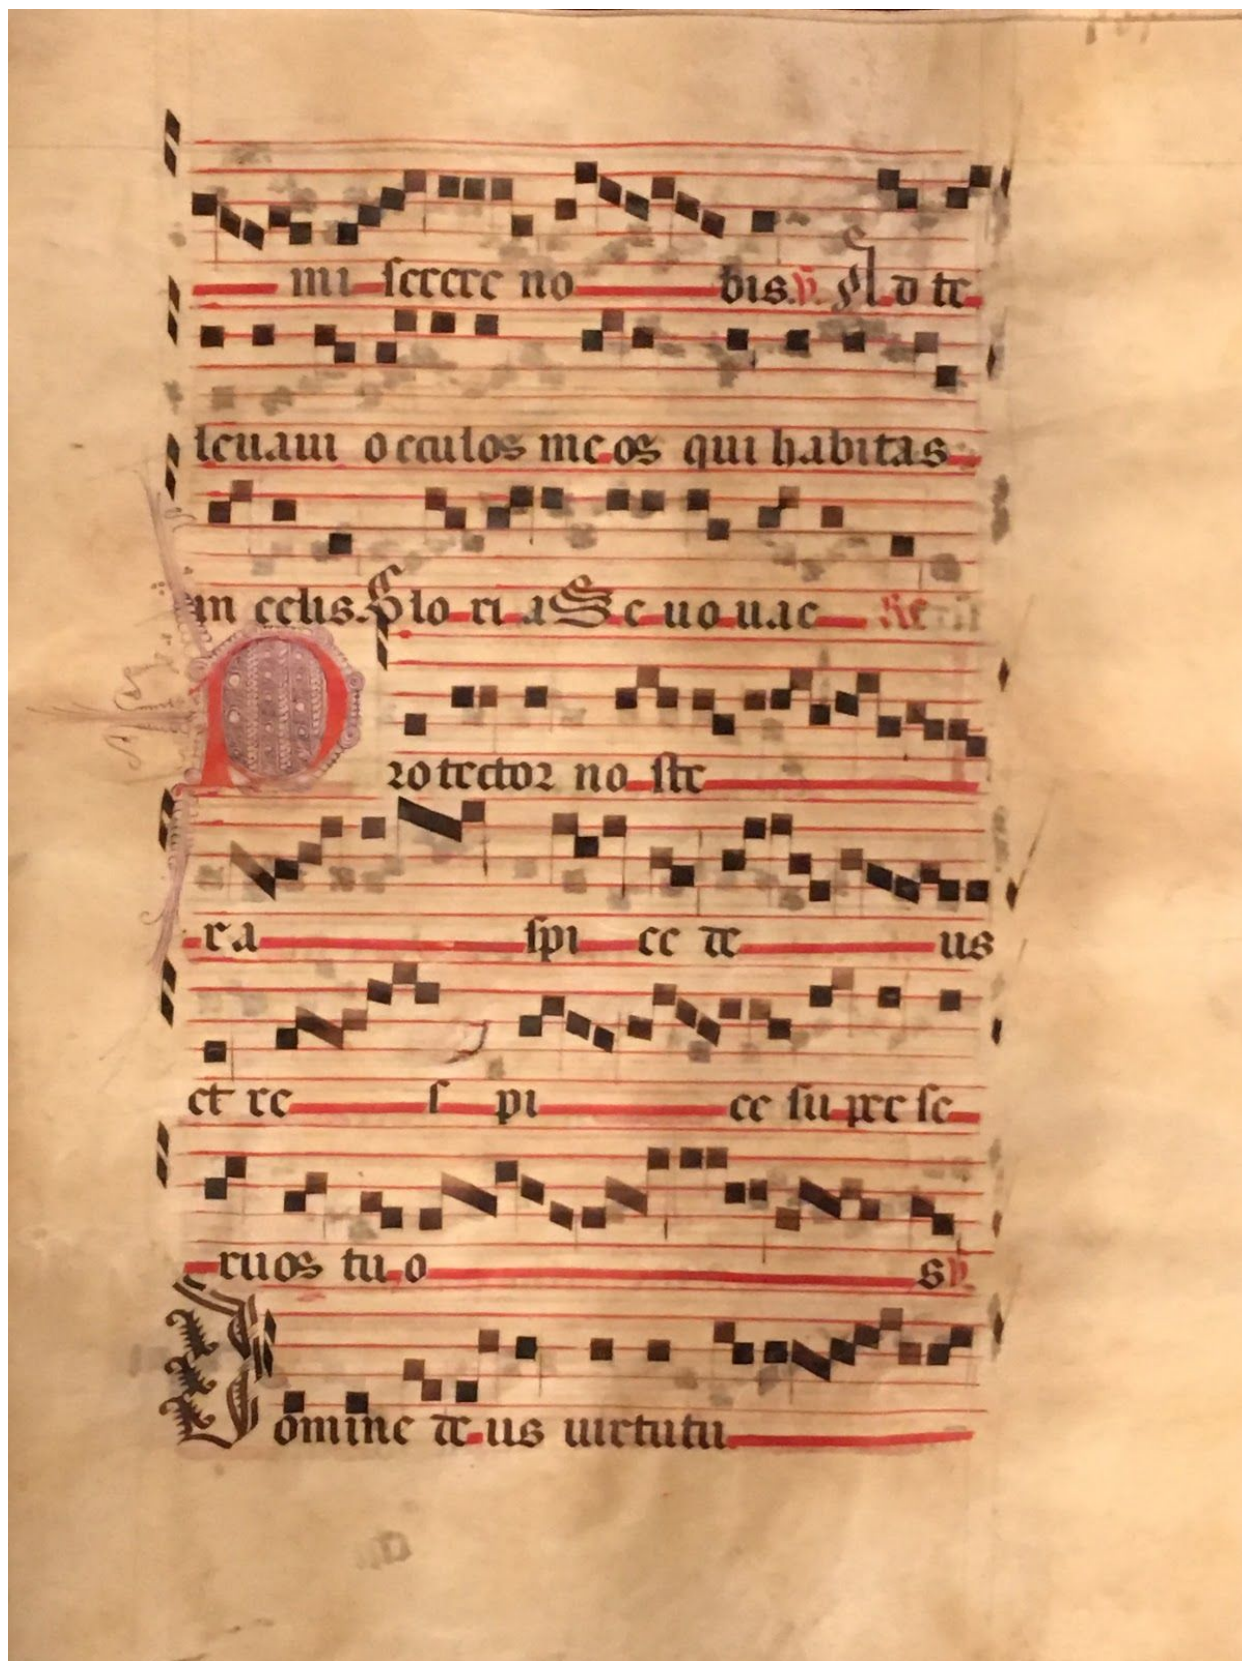 mi serere no bis. ℣. Ad te
leuaui occulos meos qui habitas
in celis. Glo ri a Seuouae
Protector no ste
ra spi ce de us
et re s pi ce su per fe
ruos tu o s ℣.
Domine de us uirtutu